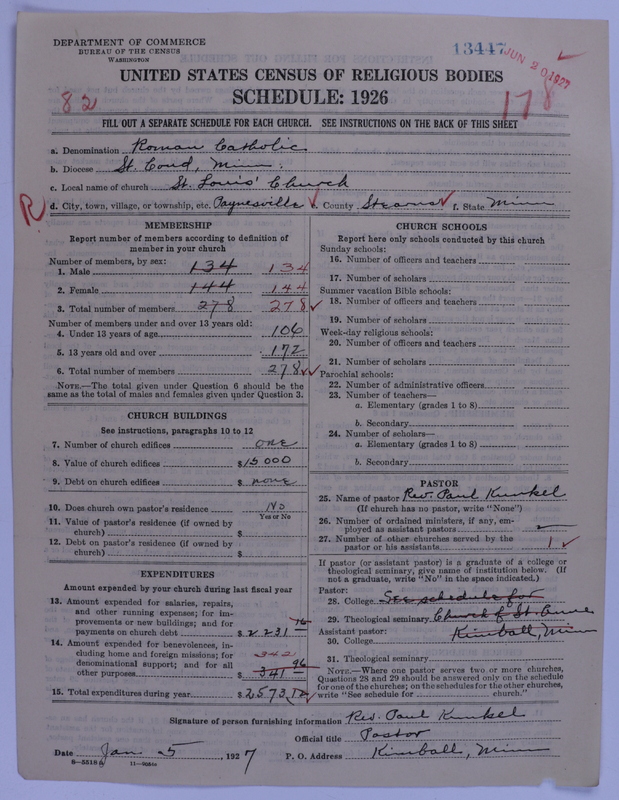 DEPARTMENT OF COMMERCE
BUREAU OF THE CENSUS
WASHINGTON
13447
JUN 20 1927
UNITED STATES CENSUS OF RELIGIOUS BODIES
SCHEDULE: 1926
82
178
FILL OUT A SEPARATE SCHEDULE FOR EACH CHURCH. SEE INSTRUCTIONS ON THE BACK OF THIS SHEET
a. Denomination Roman Catholic
b. Diocese St. Coud, Minn.
c. Local name of church St. Louis' Church
R d. City, town, village, or township, etc. Paynesville e. County Stearns f. State Minn
MEMBERSHIP
Report number of members according to definition of
member in your church
Number of members, by sex:
1. Male 134 134
2. Female 144 144
3. Total number of members 278 278
Number of members under and over 13 years old:
4. Under 13 years of age 106
5. 13 years old and over 172
6. Total number of members 278
NOTE.—The total given under Question 6 should be the
same as the total of males and females given under Question 3.
CHURCH BUILDINGS
See instructions, paragraphs 10 to 12
7. Number of church edifices one
8. Value of church edifices $15000
9. Debt on church edifices $ none
10. Does church own pastor's residence No
Yes or No
11. Value of pastor's residence (if owned by
church) $
12. Debt on pastor's residence (if owned by
church) $
EXPENDITURES
Amount expended by your church during last fiscal year
13. Amount expended for salaries, repairs,
and other running expenses; for im-
provements or new buildings; and for
payments on church debt $2231 76
14. Amount expended for benevolences, in-
cluding home and foreign missions; for
denominational support; and for all
other purposes $ 341 96
342
15. Total expenditures during year $2573 72
CHURCH SCHOOLS
Report here only schools conducted by this church
Sunday schools:
16. Number of officers and teachers
17. Number of scholars
Summer vacation Bible schools:
18. Number of officers and teachers
19. Number of scholars
Week-day religious schools:
20. Number of officers and teachers
21. Number of scholars
Parochial schools:
22. Number of administrative officers
23. Number of teachers—
a. Elementary (grades 1 to 8)
b. Secondary
24. Number of scholars—
a. Elementary (grades 1 to 8)
b. Secondary
PASTOR
25. Name of pastor Rev. Paul Kunkel
(If church has no pastor, write "None")
26. Number of ordained ministers, if any, em-
ployed as assistant pastors
27. Number of other churches served by the
pastor or his assistants 1
If pastor (or assistant pastor) is a graduate of a college or
theological seminary, give name of institution below. (If
not a graduate, write "No" in the space indicated.)
Pastor:
28. College See schedule for
29. Theological seminary Church of St. Anne
Assistant pastor: Kimball, Minn
30. College
31. Theological seminary
NOTE.—Where one pastor serves two or more churches,
Questions 28 and 29 should be answered only on the schedule
for one of the churches; on the schedules for the other churches,
write "See schedule for church."
Signature of person furnishing information Rev. Paul Kunkel
Official title Pastor
Date Jan 5, 1927 P. O. Address Kimball, Minn
8—5518a 11—9054a